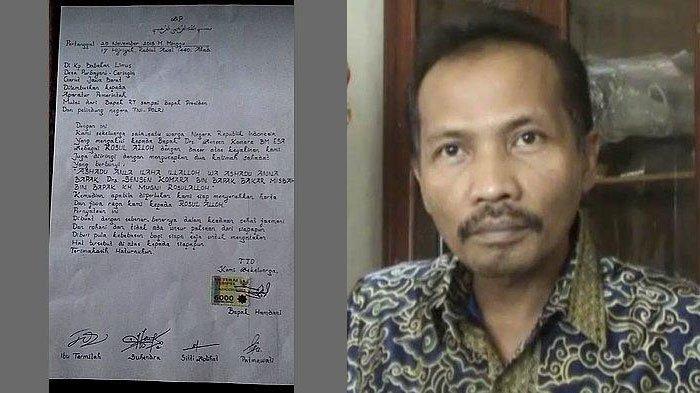 Pertanggal 25 November 2018 M Minggu
17 Hijriyah, Rabiul Awal 1440, Ahad
Di Kp. Babakan Limus
Desa Purbayani - Caringin
Garut Jawa Barat
Ditembuskan kepada
Aparatur Pemerintah
Mulai dari Bapak RT sampai Bapak Presiden
Dan pelindung negara TNI-POLRI
Dengan ini
Kami sekeluarga salah satu warga Negara Republik Indonesia
Yang mengakui kepada Bapak Drs Sensen Komara BM ESA
Sebagai ROSUL ALLOH dengan benar atas keyakinan kami
Juga diiringi dengan mengucapkan dua kalimah sahadat
Yang berbunyi:
"ASHADU ANLA ILAHA ILLALLOH WA ASHADU ANNA
BAPAK Drs. SENSEN KOMARA BIN BAPAK BAKAR MISBAH
BIN BAPAK KH MUSNI ROSULALLOH
Kemudian apabila diperlukan kami siap menyerahkan harta
Dan jiwa raga kami kepada ROSUL ALLOH
Pernyataan ini
Dibuat dengan sebenar-benarnya dalam keadaan sehat jasmani
Dan rohani dan tidak ada unsur paksaan dari siapapun
Diberi pula kebebasan bagi siapa saja untuk mengatakan
Hal tersebut di atas kepada siapapun
Terimakasih Haturnuhun
TTD
Kami Sekeluarga,
METERAI
TEMPEL
6000
Bapak Hamdani
Ibu Tarmilah Suhendra Sitti Robiah Patmawati